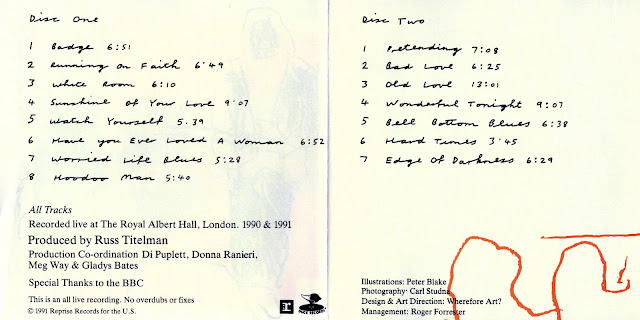 Disc One
1 Badge 6:51
2 Running on Faith 6:49
3 White Room 6:10
4 Sunshine Of Your Love 9:07
5 Watch Yourself 5.39
6 Have you Ever Loved A Woman 6:52
7 Worried Life Blues 5:28
8 Hoodoo Man 5:40
All Tracks
Recorded live at The Royal Albert Hall, London. 1990 & 1991
Produced by Russ Titelman
Production Co-ordination Di Puplett, Donna Ranieri,
Meg Way & Gladys Bates
Special Thanks to the BBC
This is an all live recording. No overdubs or fixes
© 1991 Reprise Records for the U.S.
Disc Two
1 Pretending 7:08
2 Bad Love 6:25
3 Old Love 13:01
4 Wonderful Tonight 9:07
5 Bell Bottom Blues 6:38
6 Hard Times 3:45
7 Edge Of Darkness 6:29
Illustrations: Peter Blake
Photography: Carl Studna
Design & Art Direction: Wherefore Art?
Management: Roger Forrester